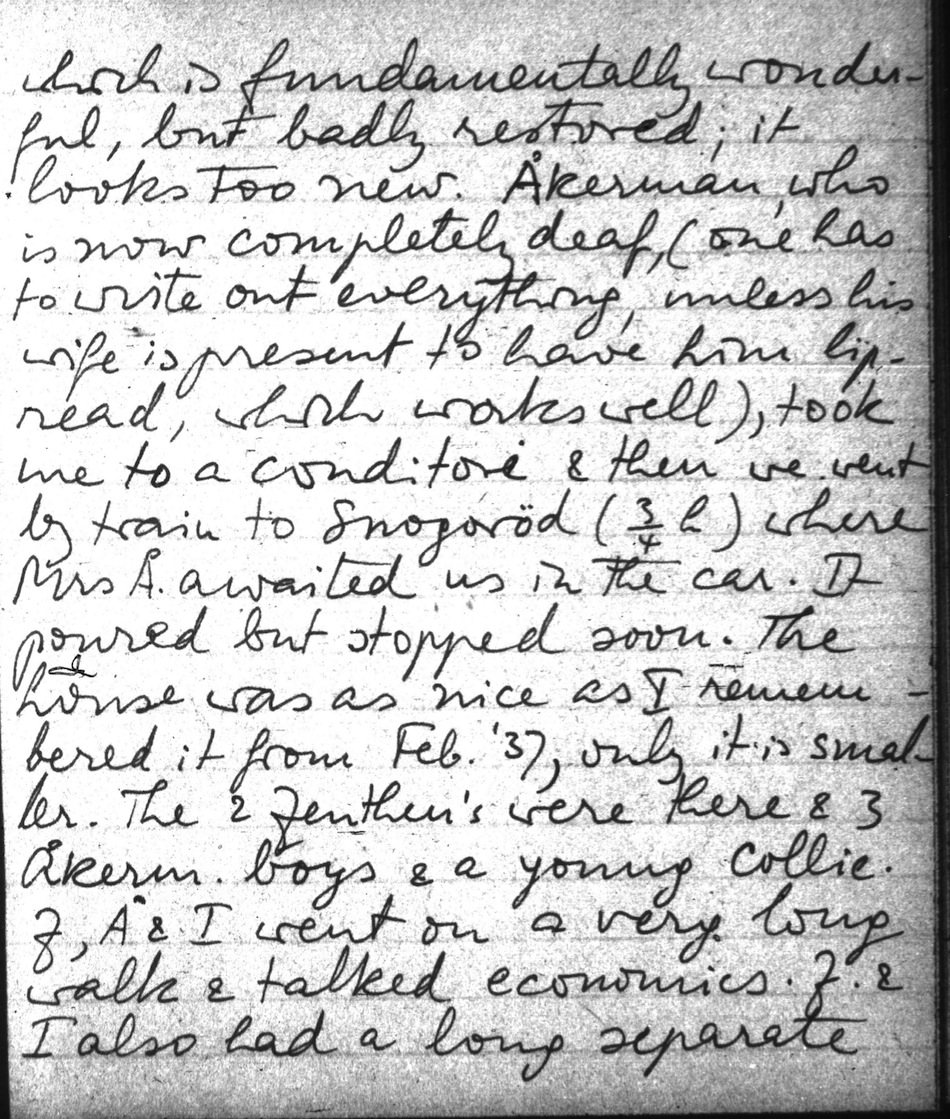 which is fundamentally wonder-
ful, but badly restored; it
looks too new. Åkerman, who
is now completely deaf, (one has
to write out everything, unless his
wife is present to have him lip-
read, which works well), took
me to a conditori & then we went
by train to Snogoröd (3/4 h) where
Mrs Å. awaited us in the car. It
poured but stopped soon. The
house was as nice as I remem-
bered it from Feb. '37, only it is smal-
ler. The 2 Zenthen's were there & 3
Åkerm. boys & a young Collie.
Z, Å & I went on a very long
walk & talked economics. Z. &
I also had a long separate